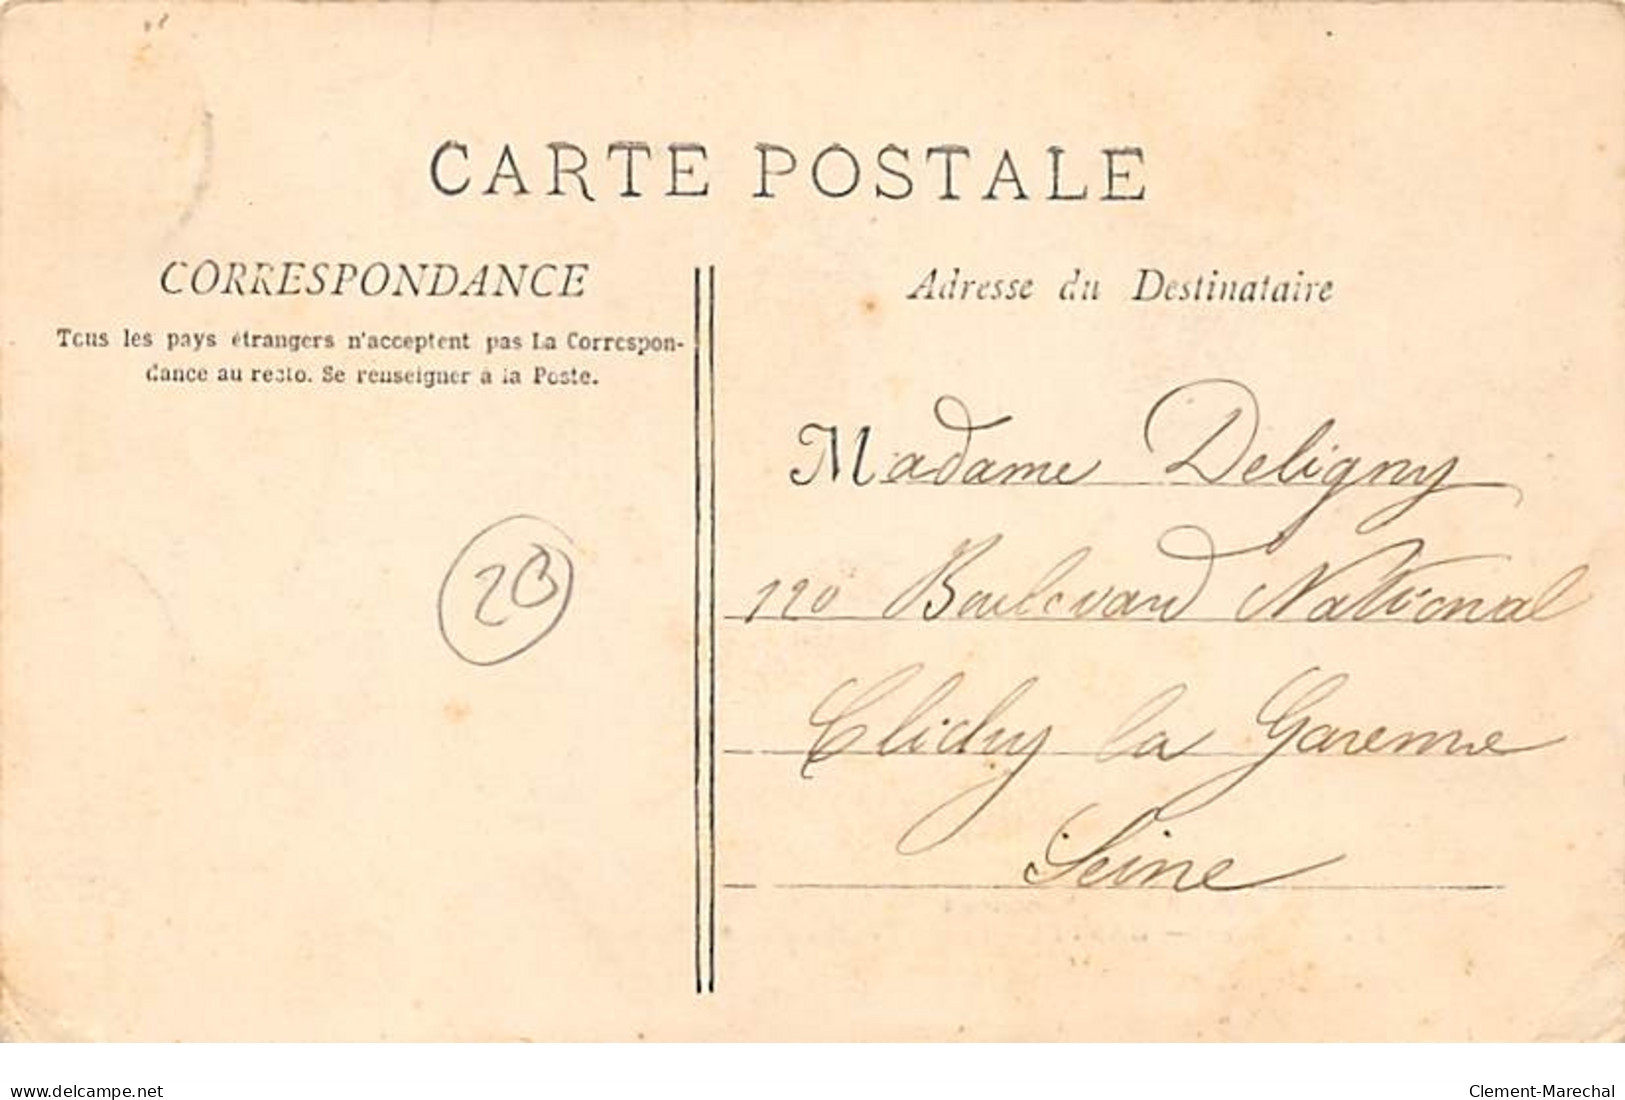 CARTE POSTALE
CORRESPONDANCE
Tous les pays étrangers n'acceptent pas La Correspon-
dance au recto. Se renseigner à la Poste.
Adresse du Destinataire
Madame Deligny
120 Boulevard National
Clichy la Garenne
Seine
www.delcampe.net
Clement-Marechal